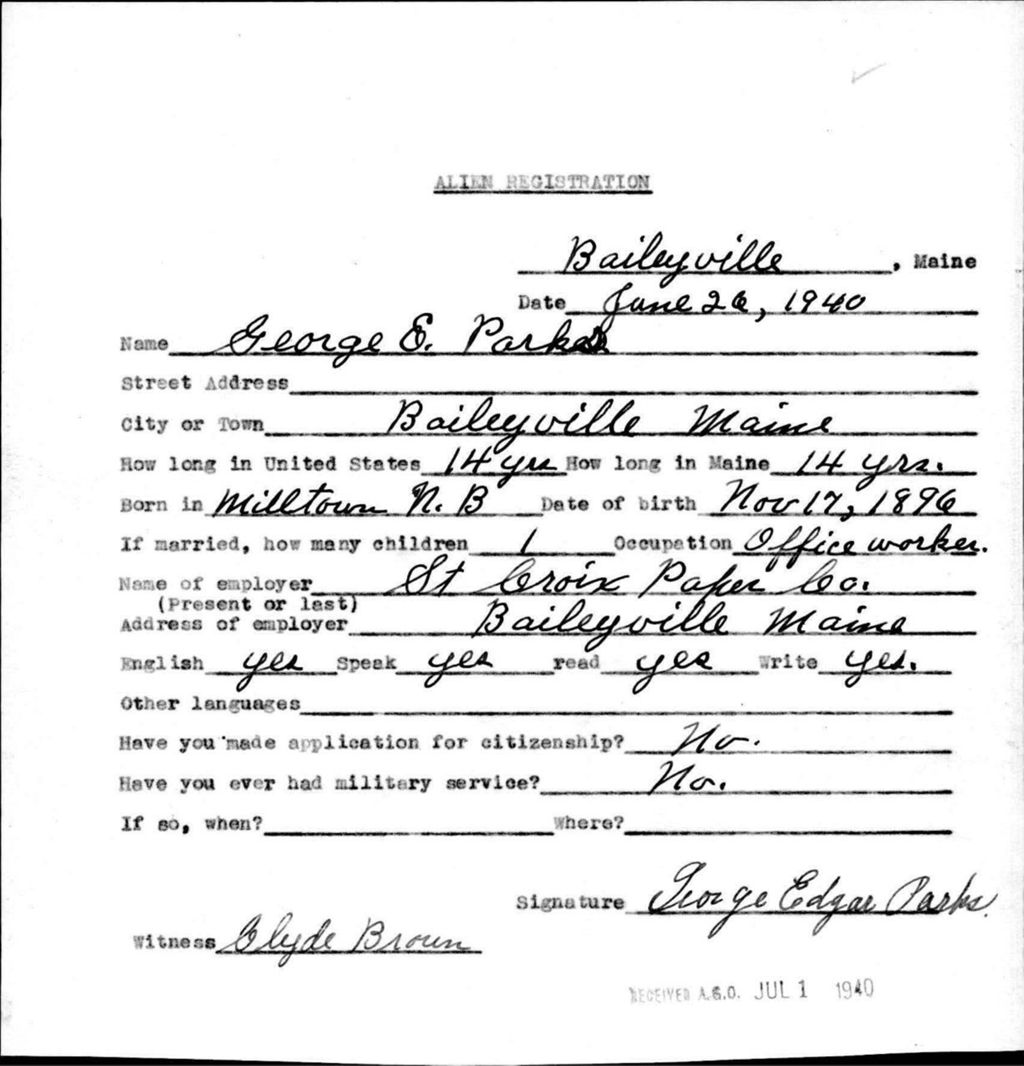 ALIEN REGISTRATION
Baileyville, Maine
Date June 26, 1940
Name George E. Parks
Street Address
City or Town Baileyville Maine
How long in United States 14 yrs How long in Maine 14 yrs.
Born in Milltown N. B Date of birth Nov 17, 1896
If married, how many children 1 Occupation Office worker.
Name of employer St Croix Paper Co.
(Present or last)
Address of employer Baileyville Maine
English yes Speak yes read yes Write yes.
Other languages
Have you made application for citizenship? No.
Have you ever had military service? No.
If so, when? Where?
Signature George Edgar Parks.
Witness Clyde Brown
RECEIVED A.G.O. JUL 1 1940